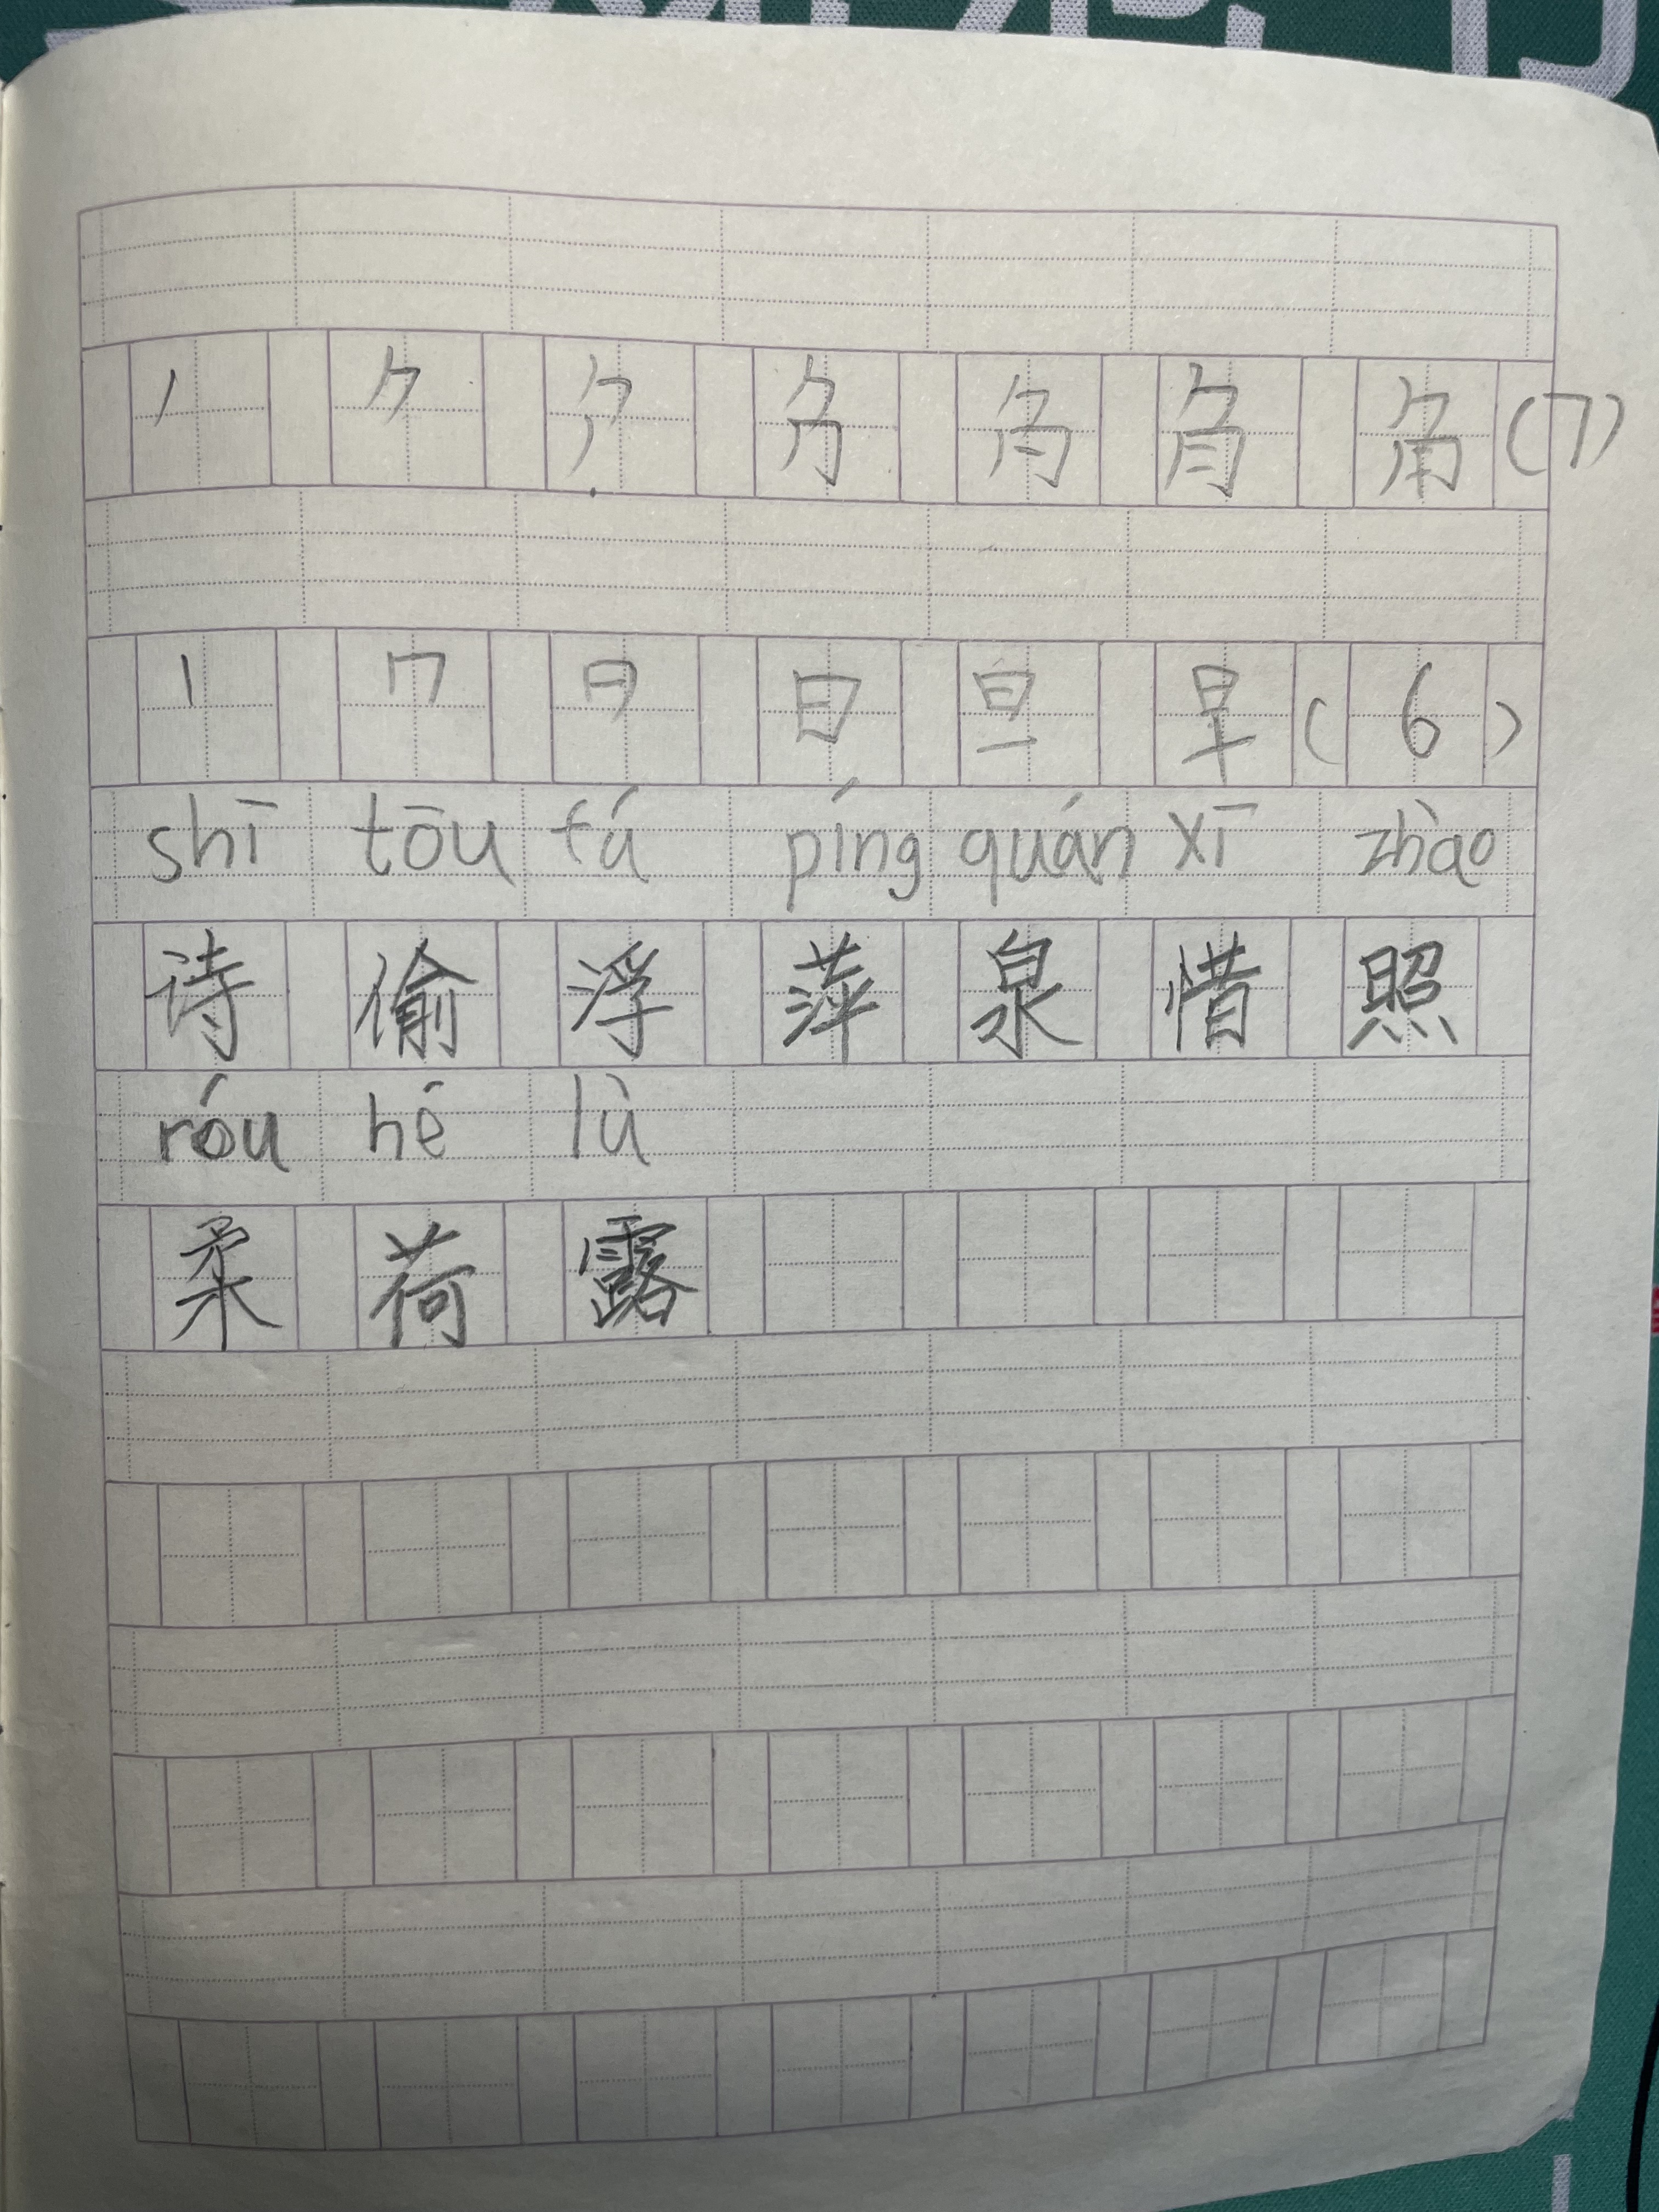 丿 ⺈ 角 (7)
丨 冂 日 旦 早 (6)
shī tōu fú píng quán xī zhào
诗 偷 浮 萍 泉 惜 照
róu hé lù
柔 荷 露